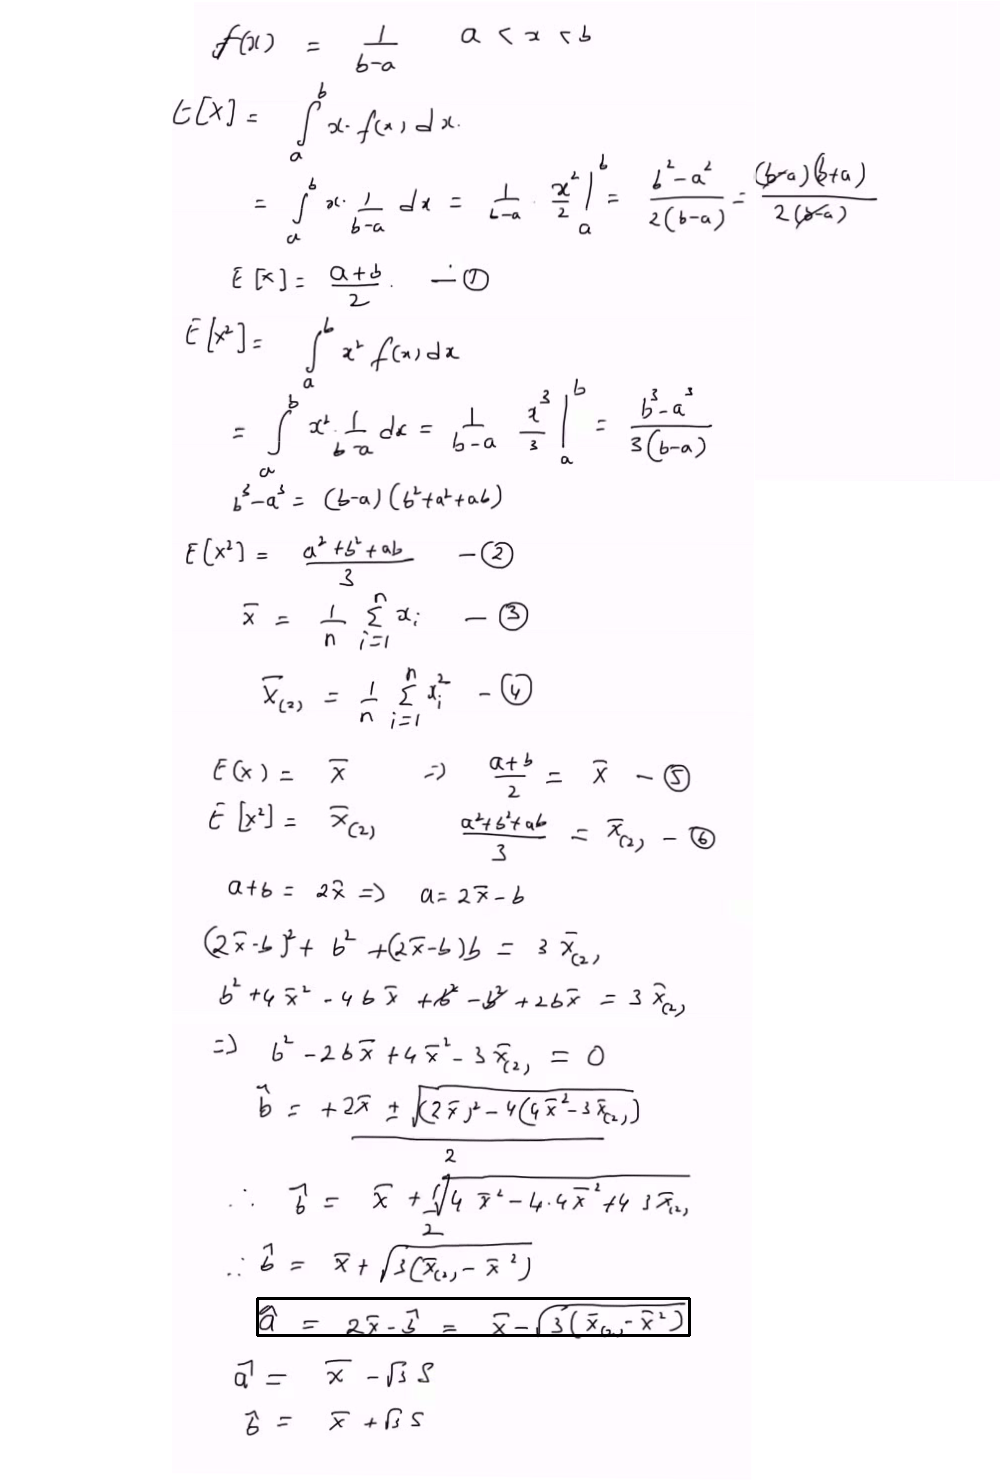 f(x) = 1/(b-a) a < x < b
E[X] = ∫_a^b x · f(x) dx.
= ∫_a^b x · 1/(b-a) dx = 1/(b-a) · x²/2 |_a^b = (b²-a²)/(2(b-a)) = ((b-a)(b+a))/(2(b-a))
E[x] = (a+b)/2 . — ①
E[x²] = ∫_a^b x² f(x) dx
= ∫_a^b x² · 1/(b-a) dx = 1/(b-a) x³/3 |_a^b = (b³-a³)/(3(b-a))
b³-a³ = (b-a)(b²+a²+ab)
E[x²] = (a²+b²+ab)/3 — ②
x̄ = 1/n Σ_{i=1}^n x_i — ③
x̄_(2) = 1/n Σ_{i=1}^n x_i² — ④
E(x) = x̄ => (a+b)/2 = x̄ — ⑤
E[x²] = x̄_(2) (a²+b²+ab)/3 = x̄_(2) — ⑥
a+b = 2x̄ => a = 2x̄-b
(2x̄-b)² + b² + (2x̄-b)b = 3 x̄_(2)
b² + 4x̄² - 4bx̄ + b² - b² + 2bx̄ = 3 x̄_(2)
=> b² - 2bx̄ + 4x̄² - 3x̄_(2) = 0
b̂ = (+2x̄ ± √((2x̄)² - 4(4x̄² - 3x̄_(2))))/2
∴ b̂ = x̄ + √(4x̄² - 4·4x̄² + 4 3x̄_(2))/2
∴ b̂ = x̄ + √(3(x̄_(2) - x̄²))
â = 2x̄ - b̂ = x̄ - √(3(x̄_(2) - x̄²))
â = x̄ - √3 S
b̂ = x̄ + √3 S